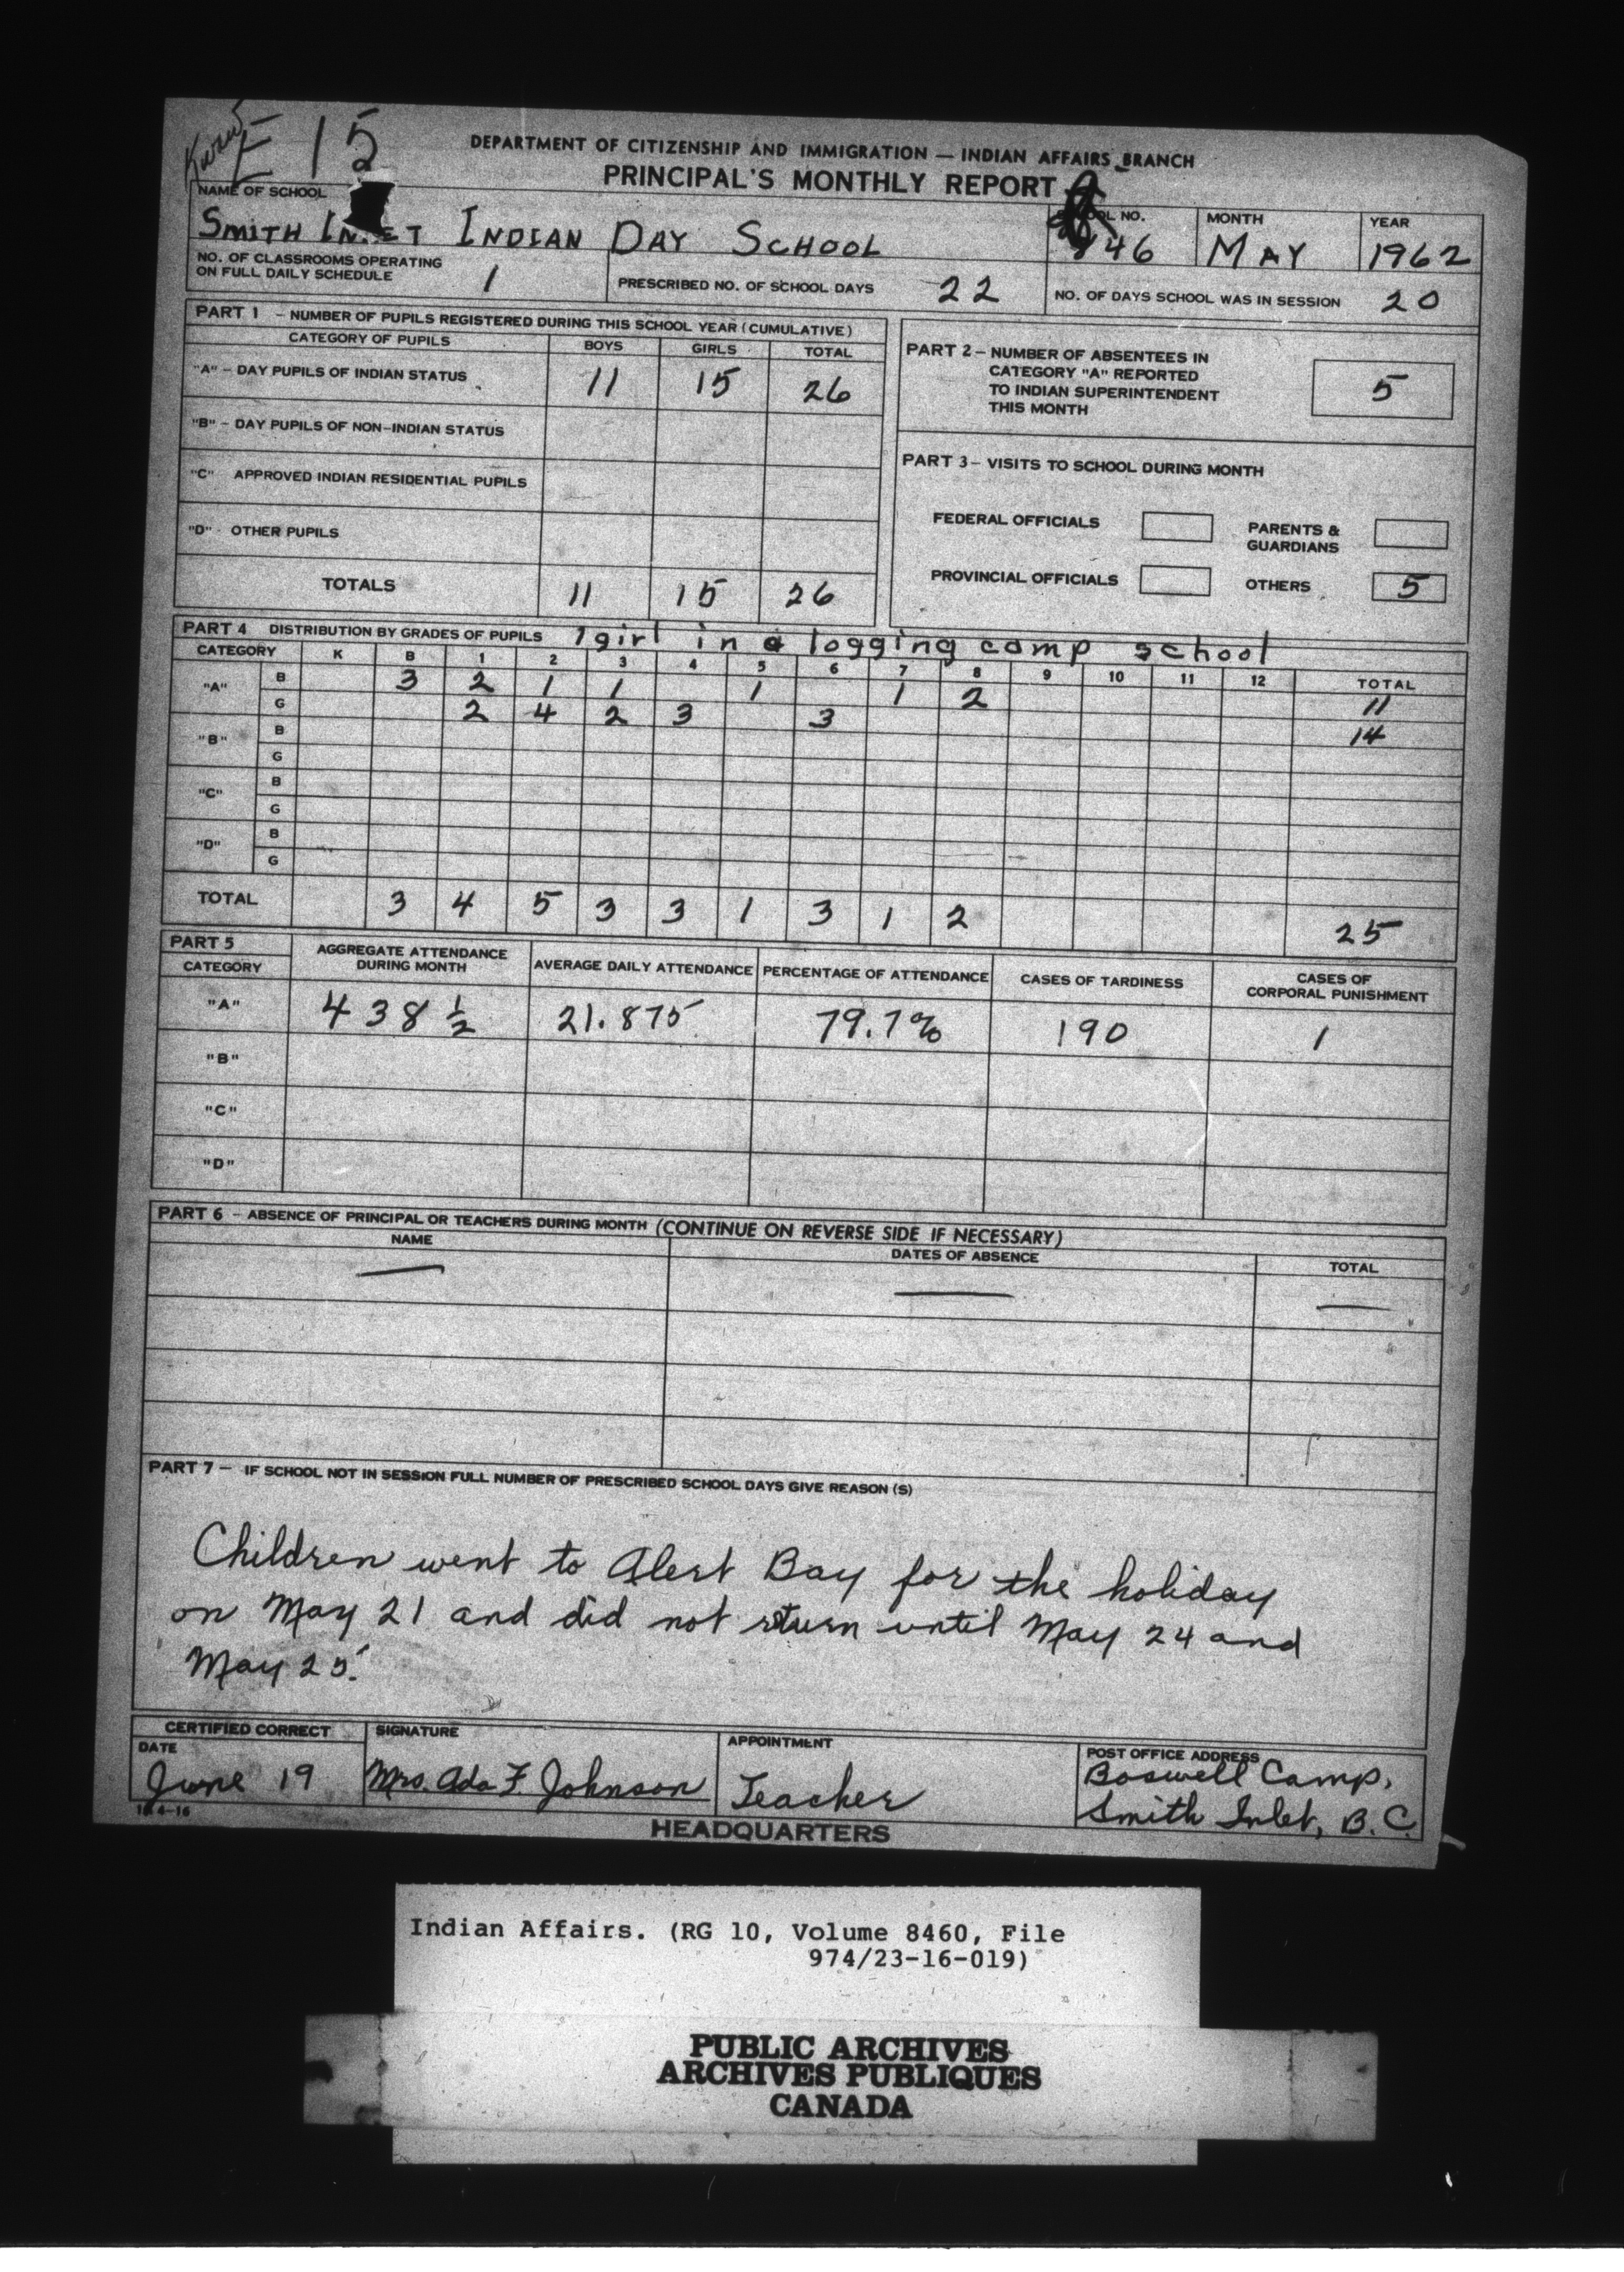 Kwaw
E 15
DEPARTMENT OF CITIZENSHIP AND IMMIGRATION — INDIAN AFFAIRS BRANCH
PRINCIPAL'S MONTHLY REPORT
NAME OF SCHOOL SMITH INLET INDIAN DAY SCHOOL SCHOOL NO. 846 MONTH MAY YEAR 1962
NO. OF CLASSROOMS OPERATING
ON FULL DAILY SCHEDULE 1 PRESCRIBED NO. OF SCHOOL DAYS 22 NO. OF DAYS SCHOOL WAS IN SESSION 20
PART 1 – NUMBER OF PUPILS REGISTERED DURING THIS SCHOOL YEAR (CUMULATIVE)
CATEGORY OF PUPILS BOYS GIRLS TOTAL
"A" – DAY PUPILS OF INDIAN STATUS 11 15 26
"B" – DAY PUPILS OF NON-INDIAN STATUS
"C" APPROVED INDIAN RESIDENTIAL PUPILS
"D" - OTHER PUPILS
TOTALS 11 15 26
PART 2 – NUMBER OF ABSENTEES IN
CATEGORY "A" REPORTED
TO INDIAN SUPERINTENDENT
THIS MONTH 5
PART 3 – VISITS TO SCHOOL DURING MONTH
FEDERAL OFFICIALS PARENTS &
GUARDIANS
PROVINCIAL OFFICIALS OTHERS 5
PART 4 DISTRIBUTION BY GRADES OF PUPILS 1 girl in a logging camp school
CATEGORY K B 1 2 3 4 5 6 7 8 9 10 11 12 TOTAL
"A" B 3 2 1 1 1 1 2 11
G 2 4 2 3 3 14
"B" B
G
"C" B
G
"D" B
G
TOTAL 3 4 5 3 3 1 3 1 2 25
PART 5
CATEGORY AGGREGATE ATTENDANCE
DURING MONTH AVERAGE DAILY ATTENDANCE PERCENTAGE OF ATTENDANCE CASES OF TARDINESS CASES OF
CORPORAL PUNISHMENT
"A" 438 ½ 21.875 79.7% 190 1
"B"
"C"
"D"
PART 6 – ABSENCE OF PRINCIPAL OR TEACHERS DURING MONTH (CONTINUE ON REVERSE SIDE IF NECESSARY)
NAME DATES OF ABSENCE TOTAL
— — —
PART 7 – IF SCHOOL NOT IN SESSION FULL NUMBER OF PRESCRIBED SCHOOL DAYS GIVE REASON (S)
Children went to Alert Bay for the holiday
on May 21 and did not return until May 24 and
May 25.
CERTIFIED CORRECT
DATE June 19 SIGNATURE Mrs. Ada F. Johnson APPOINTMENT Teacher POST OFFICE ADDRESS Boswell Camp,
Smith Inlet, B.C.
HEADQUARTERS
Indian Affairs. (RG 10, Volume 8460, File
974/23-16-019)
PUBLIC ARCHIVES
ARCHIVES PUBLIQUES
CANADA